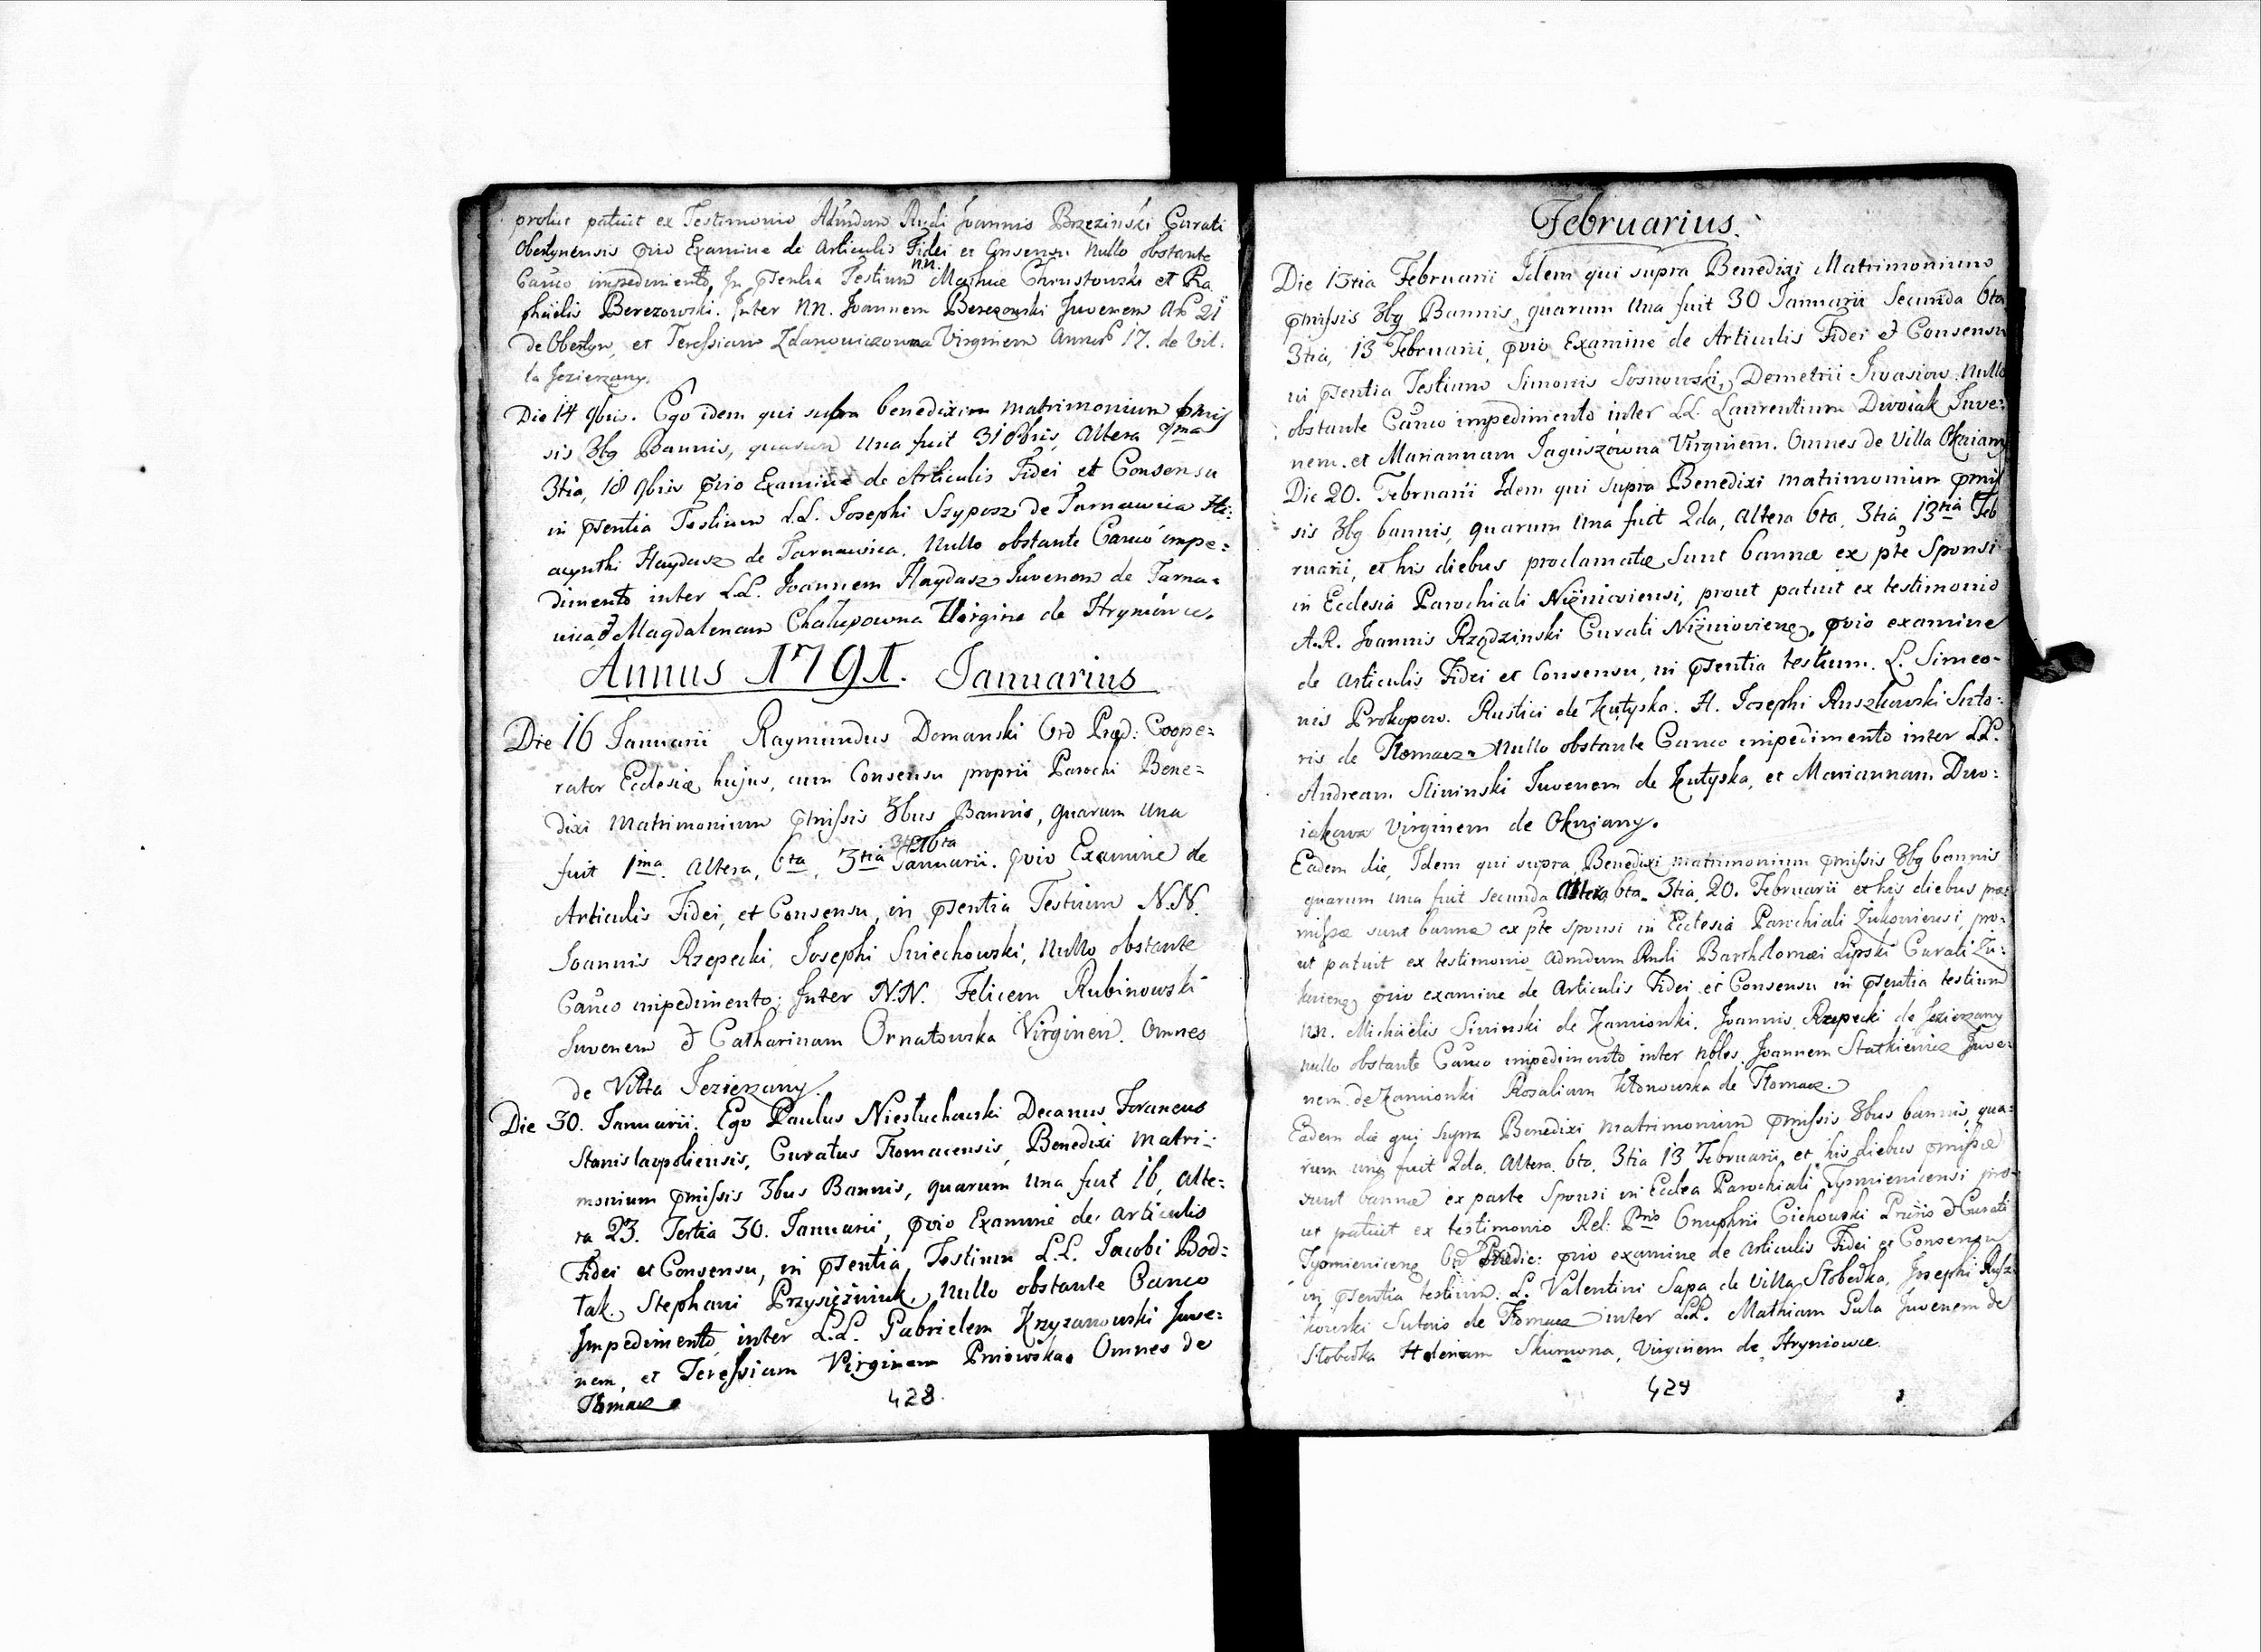 prout patuit ex Testimonio Admdum Rndi Joannis Brzezinski Curati
Obertynensis pvio Examine de Articulis Fidei et Consensu Nullo obstante
Canco impedimento, In psentia Testium nn. Mathiæ Chrustowski et Ra
phaëlis Berezowski. Inter NN. Joannem Berezowski Juvenem 21
de Obertyn, et Teressiam Zdanowiczowna Virginem Annor 17. de Vil.
la Jezierzany.
Die 14 9bris. Ego idem qui supra benedixi matrimonium pmis
sis 3bq Bannis, quarum una fuit 31 8bris, Altera 7ma
3tia, 18 9bris pvio Examine de Articulis Fidei et Consensu
in psentia Testium LL. Josephi Szyposz de Tarnawica Hi:
acynthi Haydasz de Tarnawica. Nullo obstante Canco impe:
dimento inter LL. Joannem Haydasz Juvenem de Tarna:
wica, et Magdalenam Chalupowna Virgine de Hryniowce.
Annus 1791. Januarius
Die 16 Januarii Raymundus Domanski Ord Præd: Coope:
rator Ecclesiæ hujus, cum Consensu proprii Parochi Bene:
dixi Matrimonium pmissis 3bus Bannis, quarum una
fuit 1ma. Altera, 6ta, 3tia 16ta Januarii. pvio Examine de
Articulis Fidei, et Consensu, in psentia Testium N.N.
Joannis Rzepecki, Josephi Sniechowski, Nullo obstante
Canco impedimento; Inter N.N. Felicem Rubinowski
Juvenem et Catharinam Ornatowska Virginem. Omnes
de Villa Jezierzany.
Die 30. Januarii. Ego Paulus Niesłuchowski Decanus Foraneus
Stanislaopoliensis, Curatus Tłomacensis, Benedixi Matri:
monium pmissis 3bus Bannis, quarum una fuit 16, Alte:
ra 23. Tertia 30. Januarii, pvio Examine de Articulis
Fidei et Consensu, in psentia Testium L.L. Jacobi Bod:
tak, Stephani Przysiężniuk, Nullo obstante Canco
Impedimento, inter L.L. Gabrielem Krzyzanowski Juve:
nem, et Teressiam Virginem Pniowska. Omnes de
Tłomacz
428.
Februarius.
Die 13tia Februarii Idem qui supra Benedixi Matrimonium
pmissis 3bq Bannis, quarum una fuit 30 Januarii Secunda 6ta
3tia, 13 Februarii, pvio Examine de Articulis Fidei et Consensu
in psentia Testium Simonis Sosnowski, Demetrii Iwasiow. Nullo
obstante Canco impedimento inter LL. Laurentium Dwoiak Juve:
nem. et Mariannam Jaguszowna Virginem. Omnes de Villa Okniany
Die 20. Februarii Idem qui supra Benedixi matrimonium pmis
sis 3bq bannis, quarum una fuit 2da, altera 6ta, 3tia 13tia Feb
ruarii, et his diebus proclamatæ sunt bannæ ex pte Sponsi
in Ecclesia Parochiali Niżnioviensi, prout patuit ex testimonio
A.R. Joannis Rządzinski Curati Niżnioviens, pvio examine
de articulis Fidei et Consensu, in psentia testium. L. Simeo-
nis Prokopow. Rustici de Kutyska. H. Josephi Ruszkowski Suto:
ris de Tłomacz. Nullo obstante Canco impedimento inter LL.
Andream Sliwinski Juvenem de Kutyska, et Mariannam Dwo:
iakowa Virginem de Okniany.
Eadem die, Idem qui supra, Benedixi matrimonium pmissis 3bq bannis
quarum una fuit secunda Altera 6ta. 3tia, 20. Februarii et his diebus pro:
missæ sunt bannæ ex pte sponsi in Ecclesia Parochiali Żukoviensi, pro:
ut patuit ex testimonio admdum Rndi Bartholomæi Lipski Curati Żu:
koviens pvio examine de Articulis Fidei et Consensu in psentia testium
nn. Michaëlis Siwinski de Kamionki. Joannis Rzepecki de Jezierzany
nullo obstante Canco impedimento inter Nbles Joannem Statkiewicz Juve:
nem. de Kamionki Rosaliam Kłonowska de Tłomacz.
Eadem die qui supra Benedixi matrimonium pmissis 3bus bannis, qua:
rum una fuit 2da. Altera 6ta. 3tia 13 Februarii, et his diebus pmissæ
sunt bannæ ex parte Sponsi in Ecclea Parochiali Tysmienicensi pro
ut patuit ex testimonio Rel: Pris Onuphrii Cichowski Prioris et Curati
Tysmienicens Ord Prædic: pvio examine de Articulis Fidei et Consensu
in psentia testium: L. Valentini Sapa de Villa Słobodka, Josephi Rusz:
kowski Sutoris de Tłomacz inter LL. Mathiam Gula Juvenem de
Słobodka Helenam Skurowna, Virginem de Hryniowce.
429